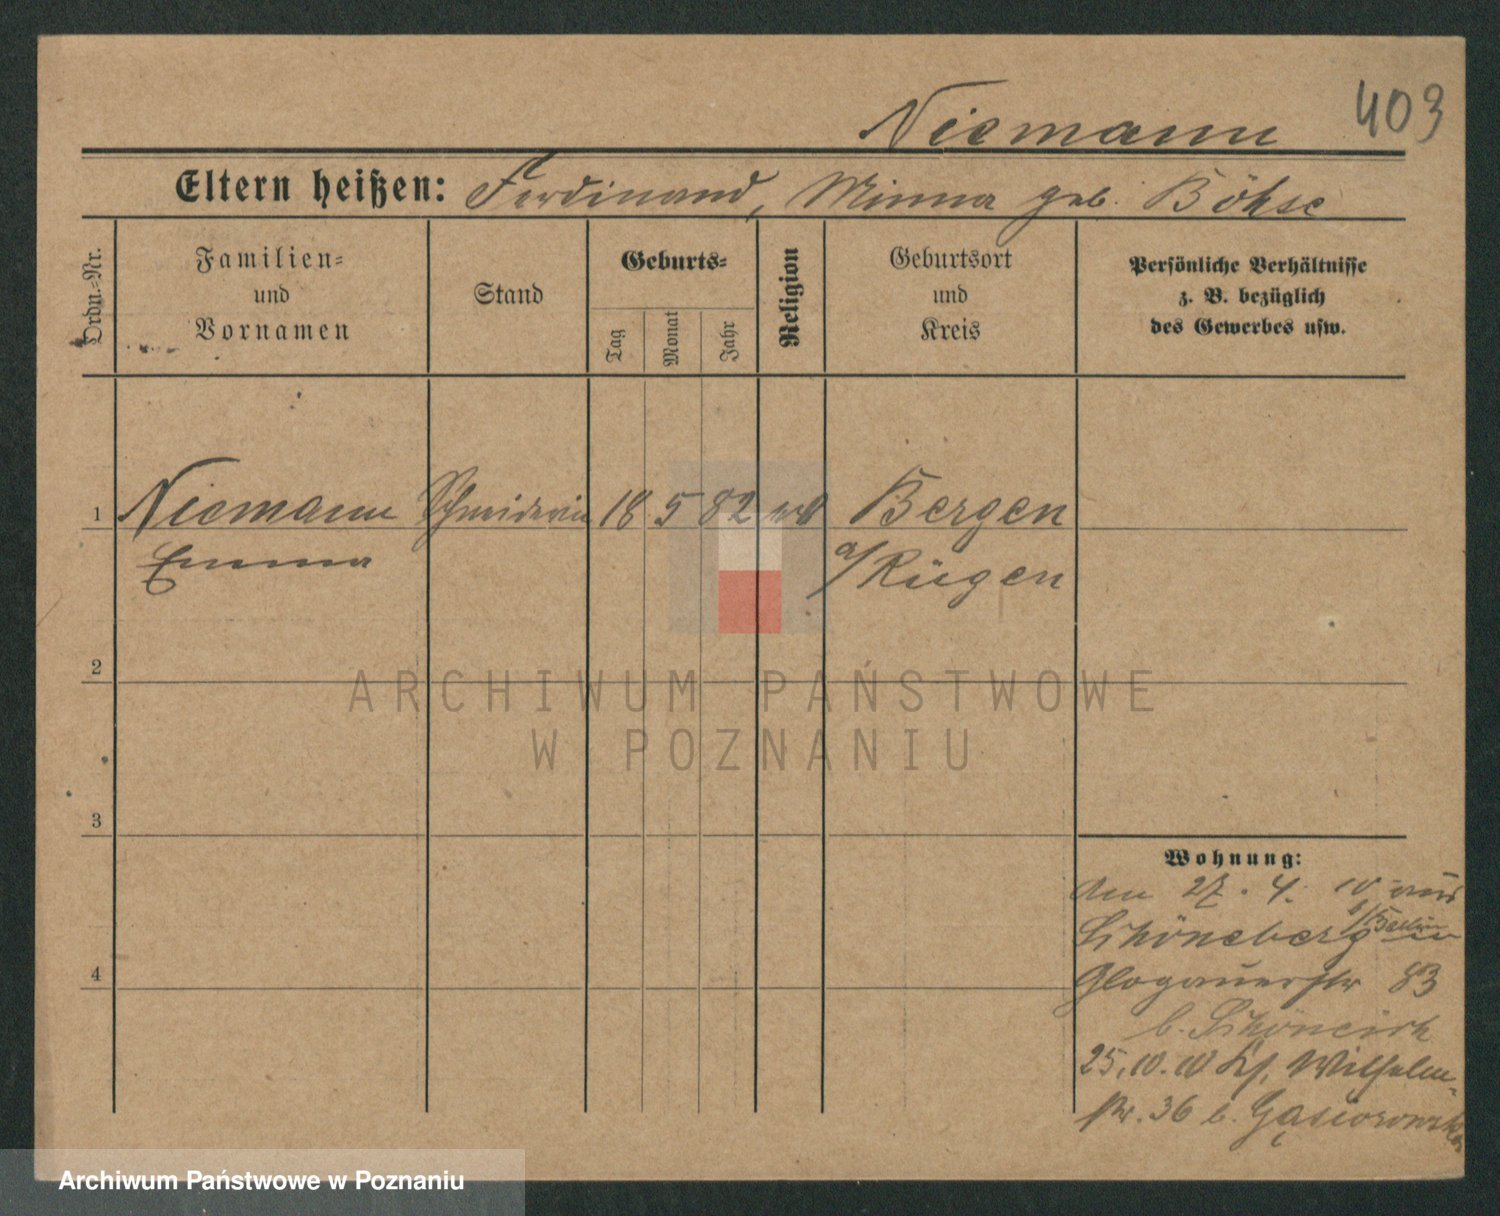 403
Niemann
Eltern heißen: Ferdinand, Minna geb. Böhse
Ordn.-Nr.
Familien-
und
Vornamen
Stand
Geburts-
Tag
Monat
Jahr
Religion
Geburtsort
und
Kreis
Persönliche Verhältnisse
z. B. bezüglich
des Gewerbes usw.
1 Niemann Schneiderin 18 5 82 Bergen
Emma a/Rügen
2
ARCHIWUM PAŃSTWOWE
W POZNANIU
3
Wohnung:
Am 27. 4. 10 aus
Schöneberg b/Berlin in
4 Glogauerstr 83
b. Schöneich
25.10.10 Ks. Wilhelm-
str. 36 b. Gąsiorowska
Archiwum Państwowe w Poznaniu